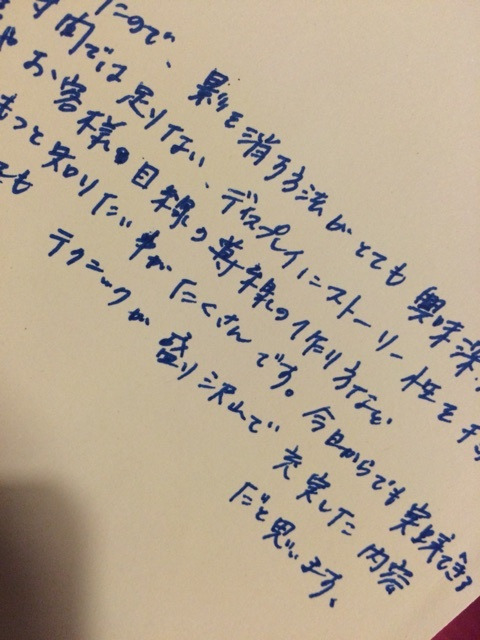 たので、影を消す方法がとても興味深
時間では足りない、ディスプレイにストーリー性をも
やお客様の目線の導線の作り方など
もっと知りたい事がたくさんです。今日からでも実践できる
テクニックが盛り沢山で充実した内容
だと思います。